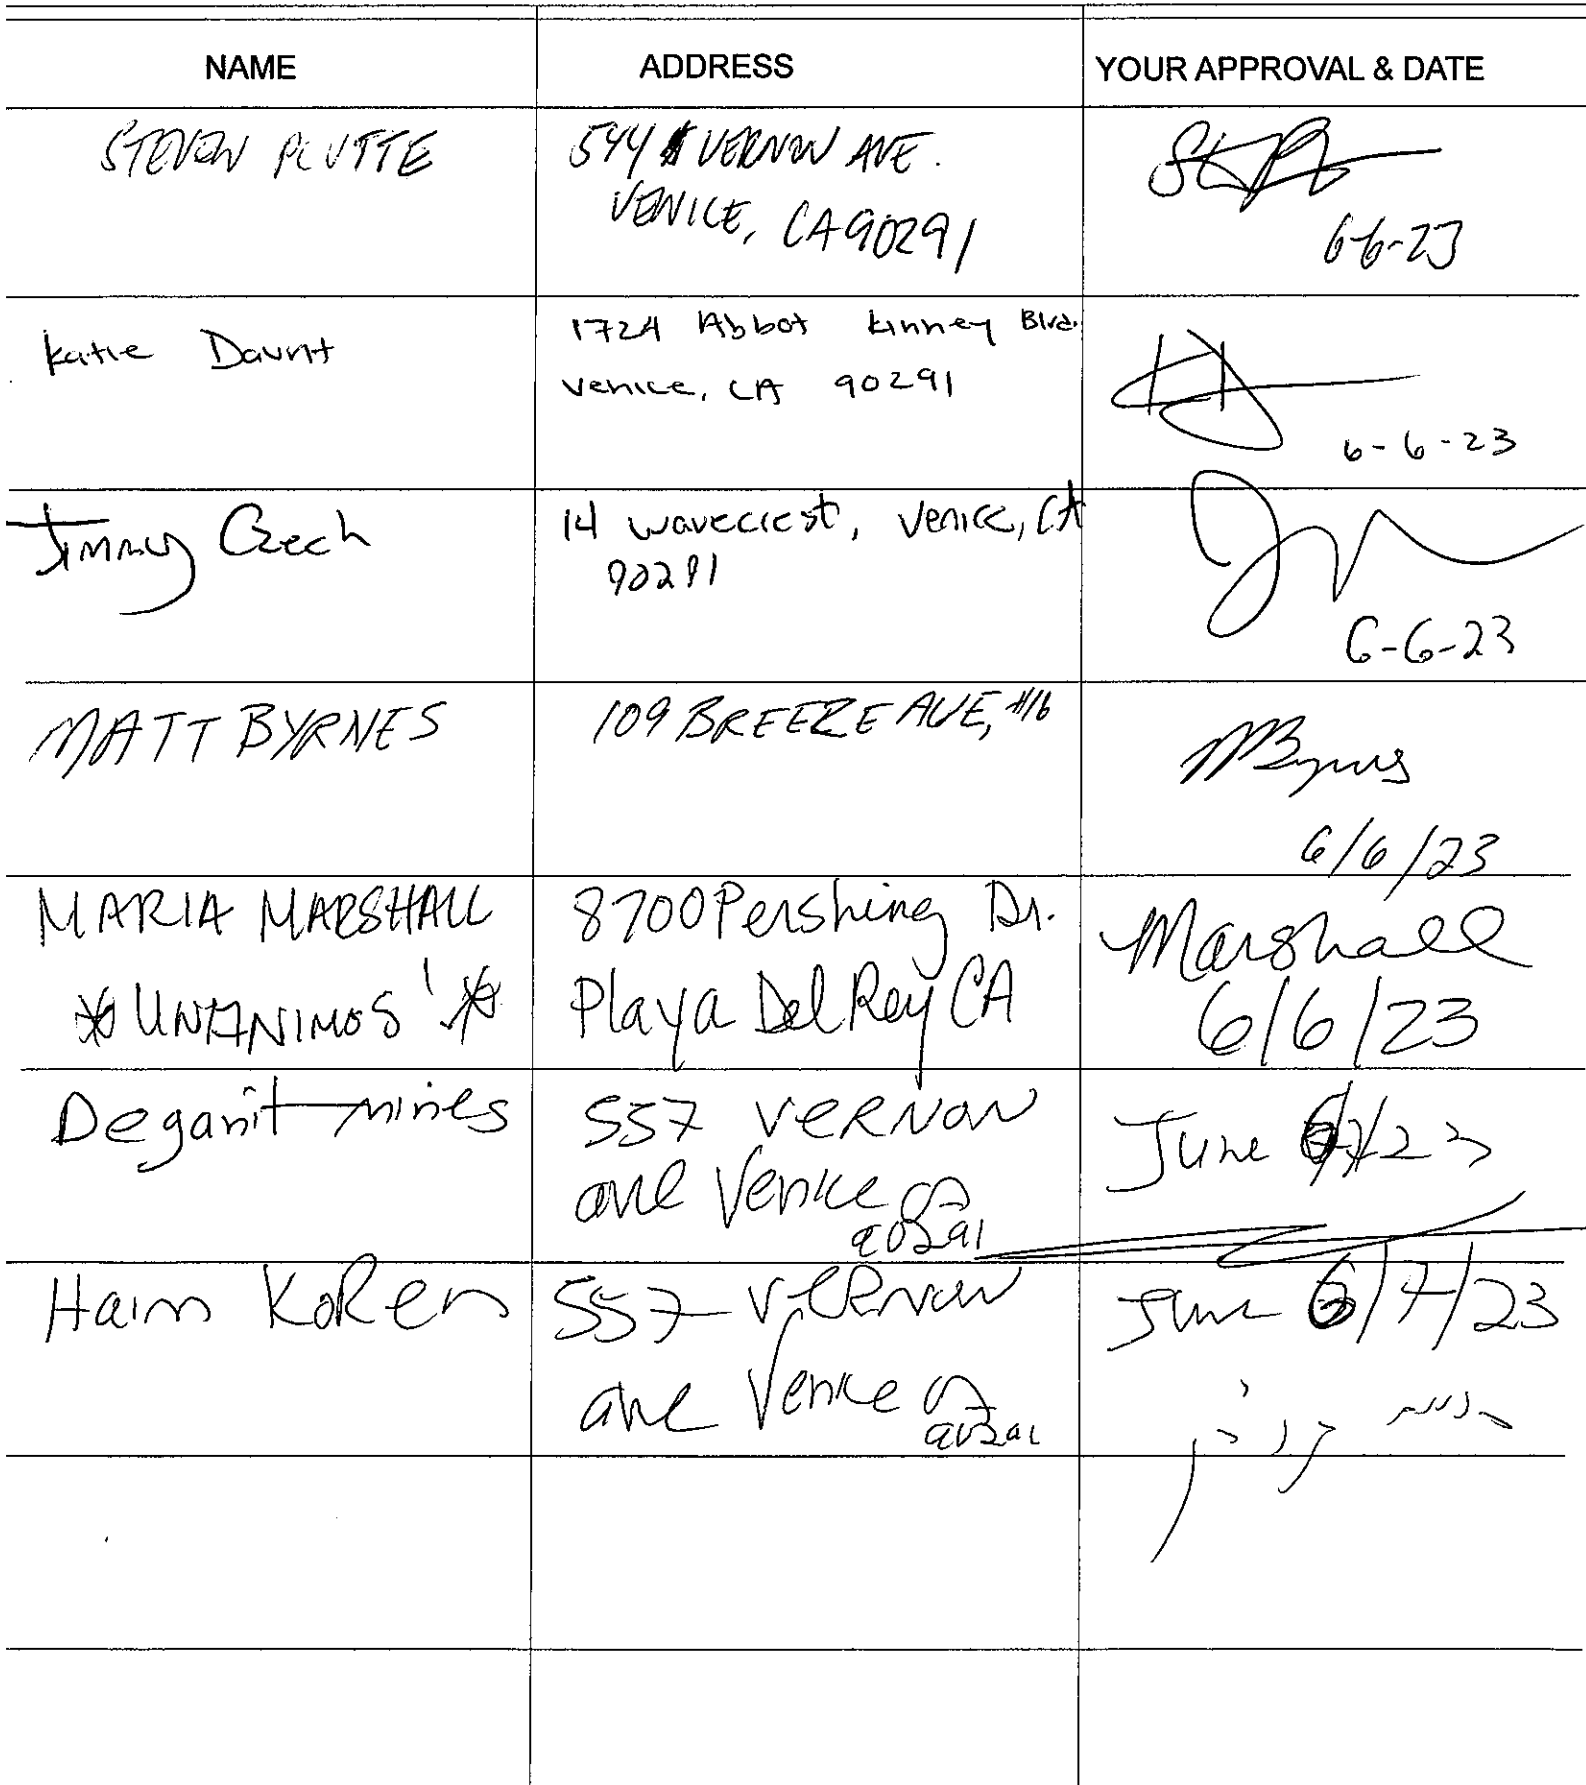 NAME ADDRESS YOUR APPROVAL & DATE
STEVEN PLUTTE 544 VERNON AVE.
VENICE, CA 90291
6-6-23
Katie Daunt 1724 Abbot Kinney Blvd.
Venice, CA 90291
6-6-23
Jimmy Czech 14 wavecrest, Venice, CA
90291
6-6-23
MATT BYRNES 109 BREEZE AVE, #16
MByrnes
6/6/23
MARIA MARSHALL 8700 Pershing Dr. Marshall
*UNANIMOS!* Playa Del Rey CA 6/6/23
Deganit mines 557 VERNON June 6/7/23
ave Venice ca
90291
Haim KoRen 557 VERNON June 6/7/23
ave Venice ca
90291